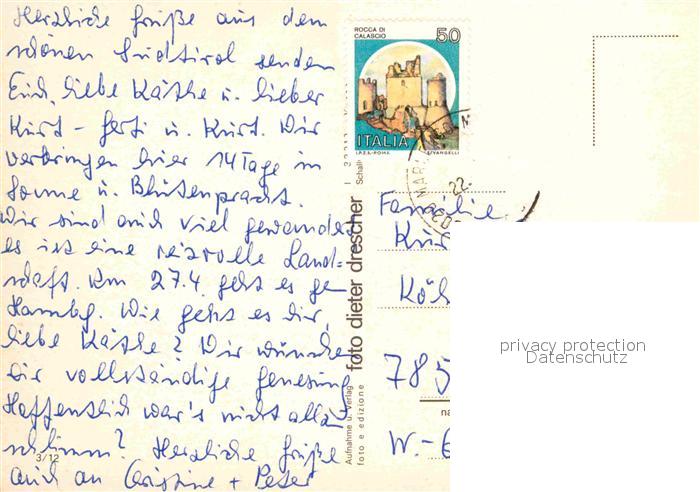 Herzliche Grüße aus dem
schönen Südtirol senden
Euch, liebe Käthe u. lieber
Kurt - Gerti u. Kurt. Wir
verbringen hier 14 Tage in
Sonne u. Blütenpracht.
Wir sind auch viel gewandert
es ist eine reizvolle Land-
schaft. Am 27.4. geht es gen
Hambg. Wie geht es dir,
liebe Käthe? Wir wünschen
dir vollständige Genesung
Hoffentlich war's nicht allzu
schlimm? Herzliche Grüße
auch an Christine + Peter
3/12
Aufnahme u. Verlag
foto e edizione
foto dieter drescher
Schall
ROCCA DI
CALASCIO
50
ITALIA
I.P.Z.S.-ROMA
E.VANGELLI
22.
Familie
Kur
Köh
785
na
W.-
privacy protection
Datenschutz